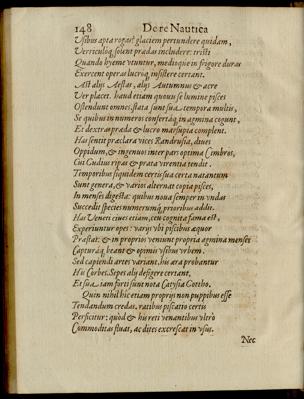 148 De re Nautica
Vsibus apta rogas? glaciem pertundere quidam,
Verriculoq́; solent prædas includere: tristi
Quando hyeme vtuntur, medioque in frigore duras
Exercent operas lucroq́; insistere certant.
Ast alijs Aestas, alijs Autumnus & acre
Ver placet. haud etiam quouis se lumine pisces
Ostendunt omnes. stata sunt sua tempora multis,
Se quibus in numeros confertáq; in agmina cogunt,
Et dextras præda & lucro marsupia complent.
Has sentit præclara vices Randrusia, diues
Oppidum, & ingenuos inter pars optima Cimbros,
Cui Gudius ripas & prata virentia tendit.
Temporibus siquidem certis sua certa natantum
Sunt genera, & varios alternat copia pisces,
In menses digesta: quibus noua semper in vndas
Succedit species numerumq́; prioribus addit.
Has Veneti ciues etiam, ceu cognita fama est,
Experiuntur opes: varijs vbi piscibus æquor
Præstat: & in proprios veniunt propria agmina menses
Capturáq; beant & opimis vsibus vrbem.
Sed capiendi artes variant. his ara probantur
His Corbes. Sepes alij defigere certant,
Et sua iam forti sunt nota Catysia Gottho.
Quin nihil hic etiam proprij non puppibus esse
Tendandum credas. ratibus piscatio certis
Perficitur: quòd & his reti venantibus vltrò
Commoditas fluat, ac dites excrescat in vsus.
Nec